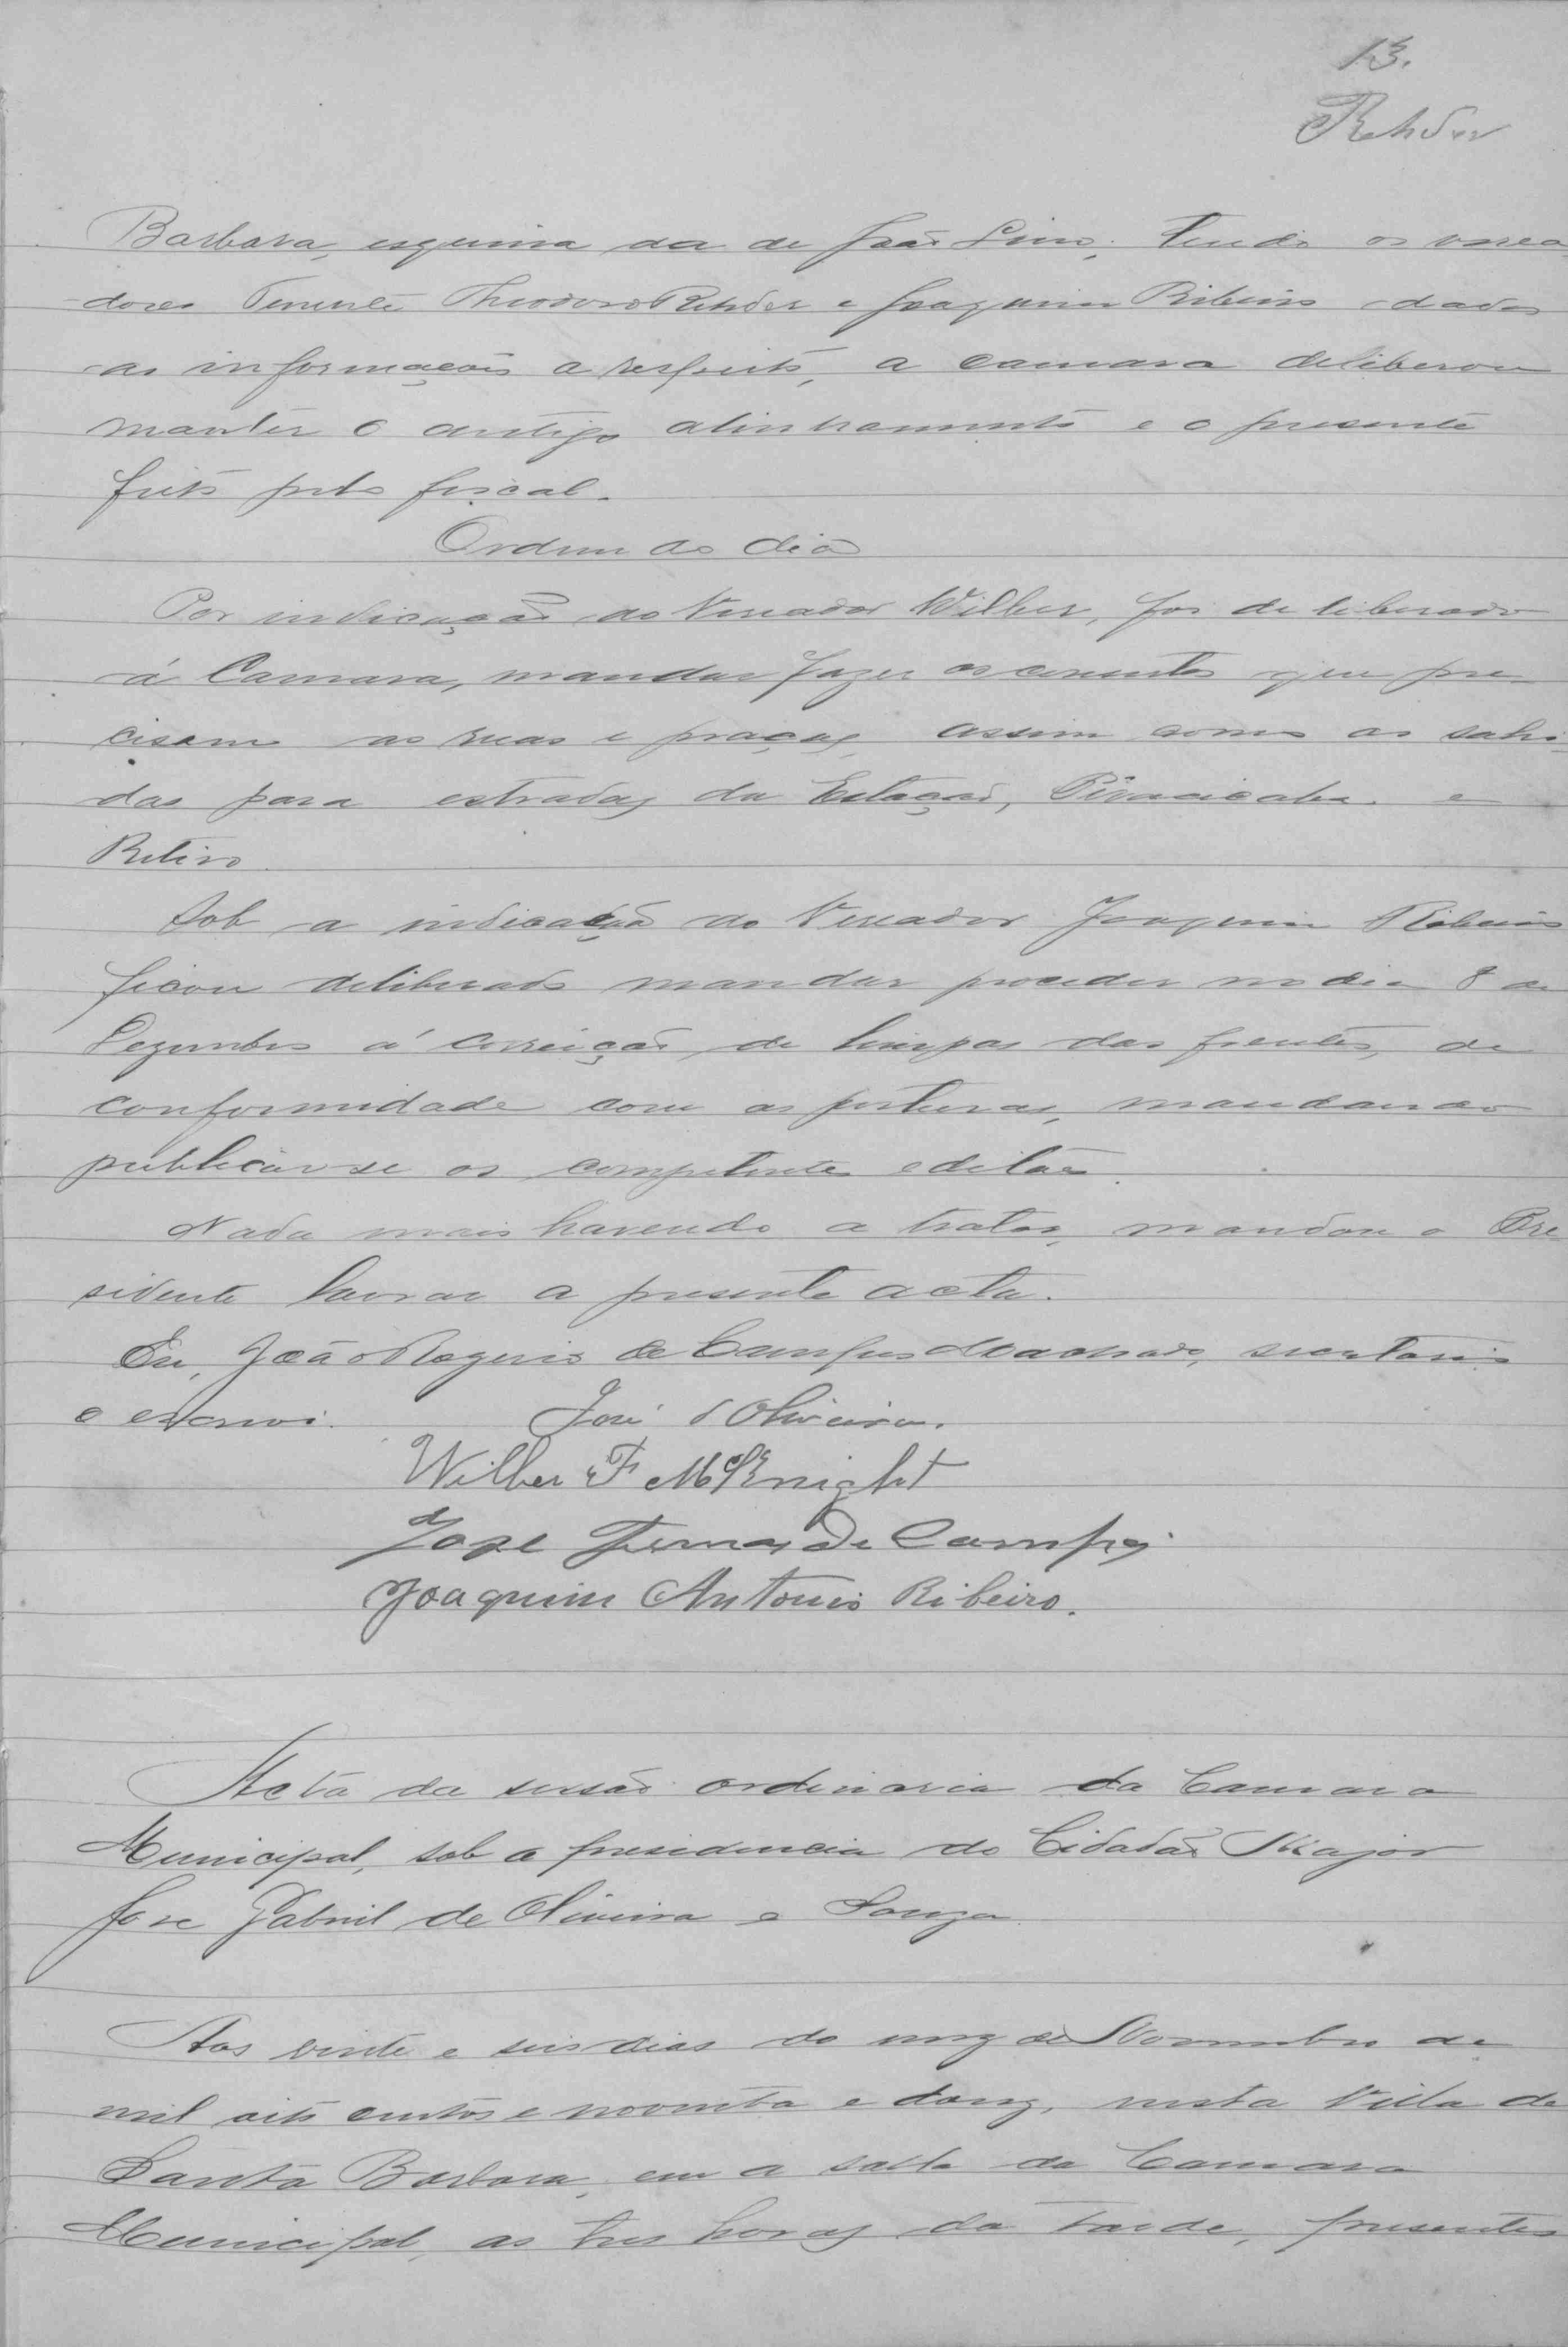 13.
Rehder
Barbara, esquina da de João Lino. Tendo os verea-
dores Tenente Theodoro Rehder e Joaquim Ribeiro dado
as informações a respeito, a camara deliberou
manter o antigo alinhamento e o presente
feito pelo fiscal.
Ordem do dia
Por indicação do Vereador Wilber, foi deliberado
á Camara, mandar fazer os concertos que pre-
cisam as ruas e praças, assim como as sahi-
das para estradas da Estação, Piracicaba e
Retiro.
Sob a indicação do Vereador Joaquim Ribeiro
ficou deliberado mandar proceder no dia 8 de
Dezembro á correição de limpas das frentes, de
conformidade com as posturas, mandando
publicar-se os competentes editaes.
Nada mais havendo a tratar, mandou o Pre-
sidente lavrar a presente acta.
Eu, João Rogerio de Campos Machado, secretario
o escrevi. José d'Oliveira.
Wilber F McKnight
José de Campos
Joaquim Antonio Ribeiro.
Acta da sessão ordinaria da Camara
Municipal, sob a presidencia do Cidadão Major
Jose Gabriel de Oliveira e Souza.
Aos vinte e seis dias do mez de Novembro de
mil oito centos e noventa e douz, nesta Villa de
Santa Barbara, em a salla da Camara
Municipal, as tres horas da tarde, presentes